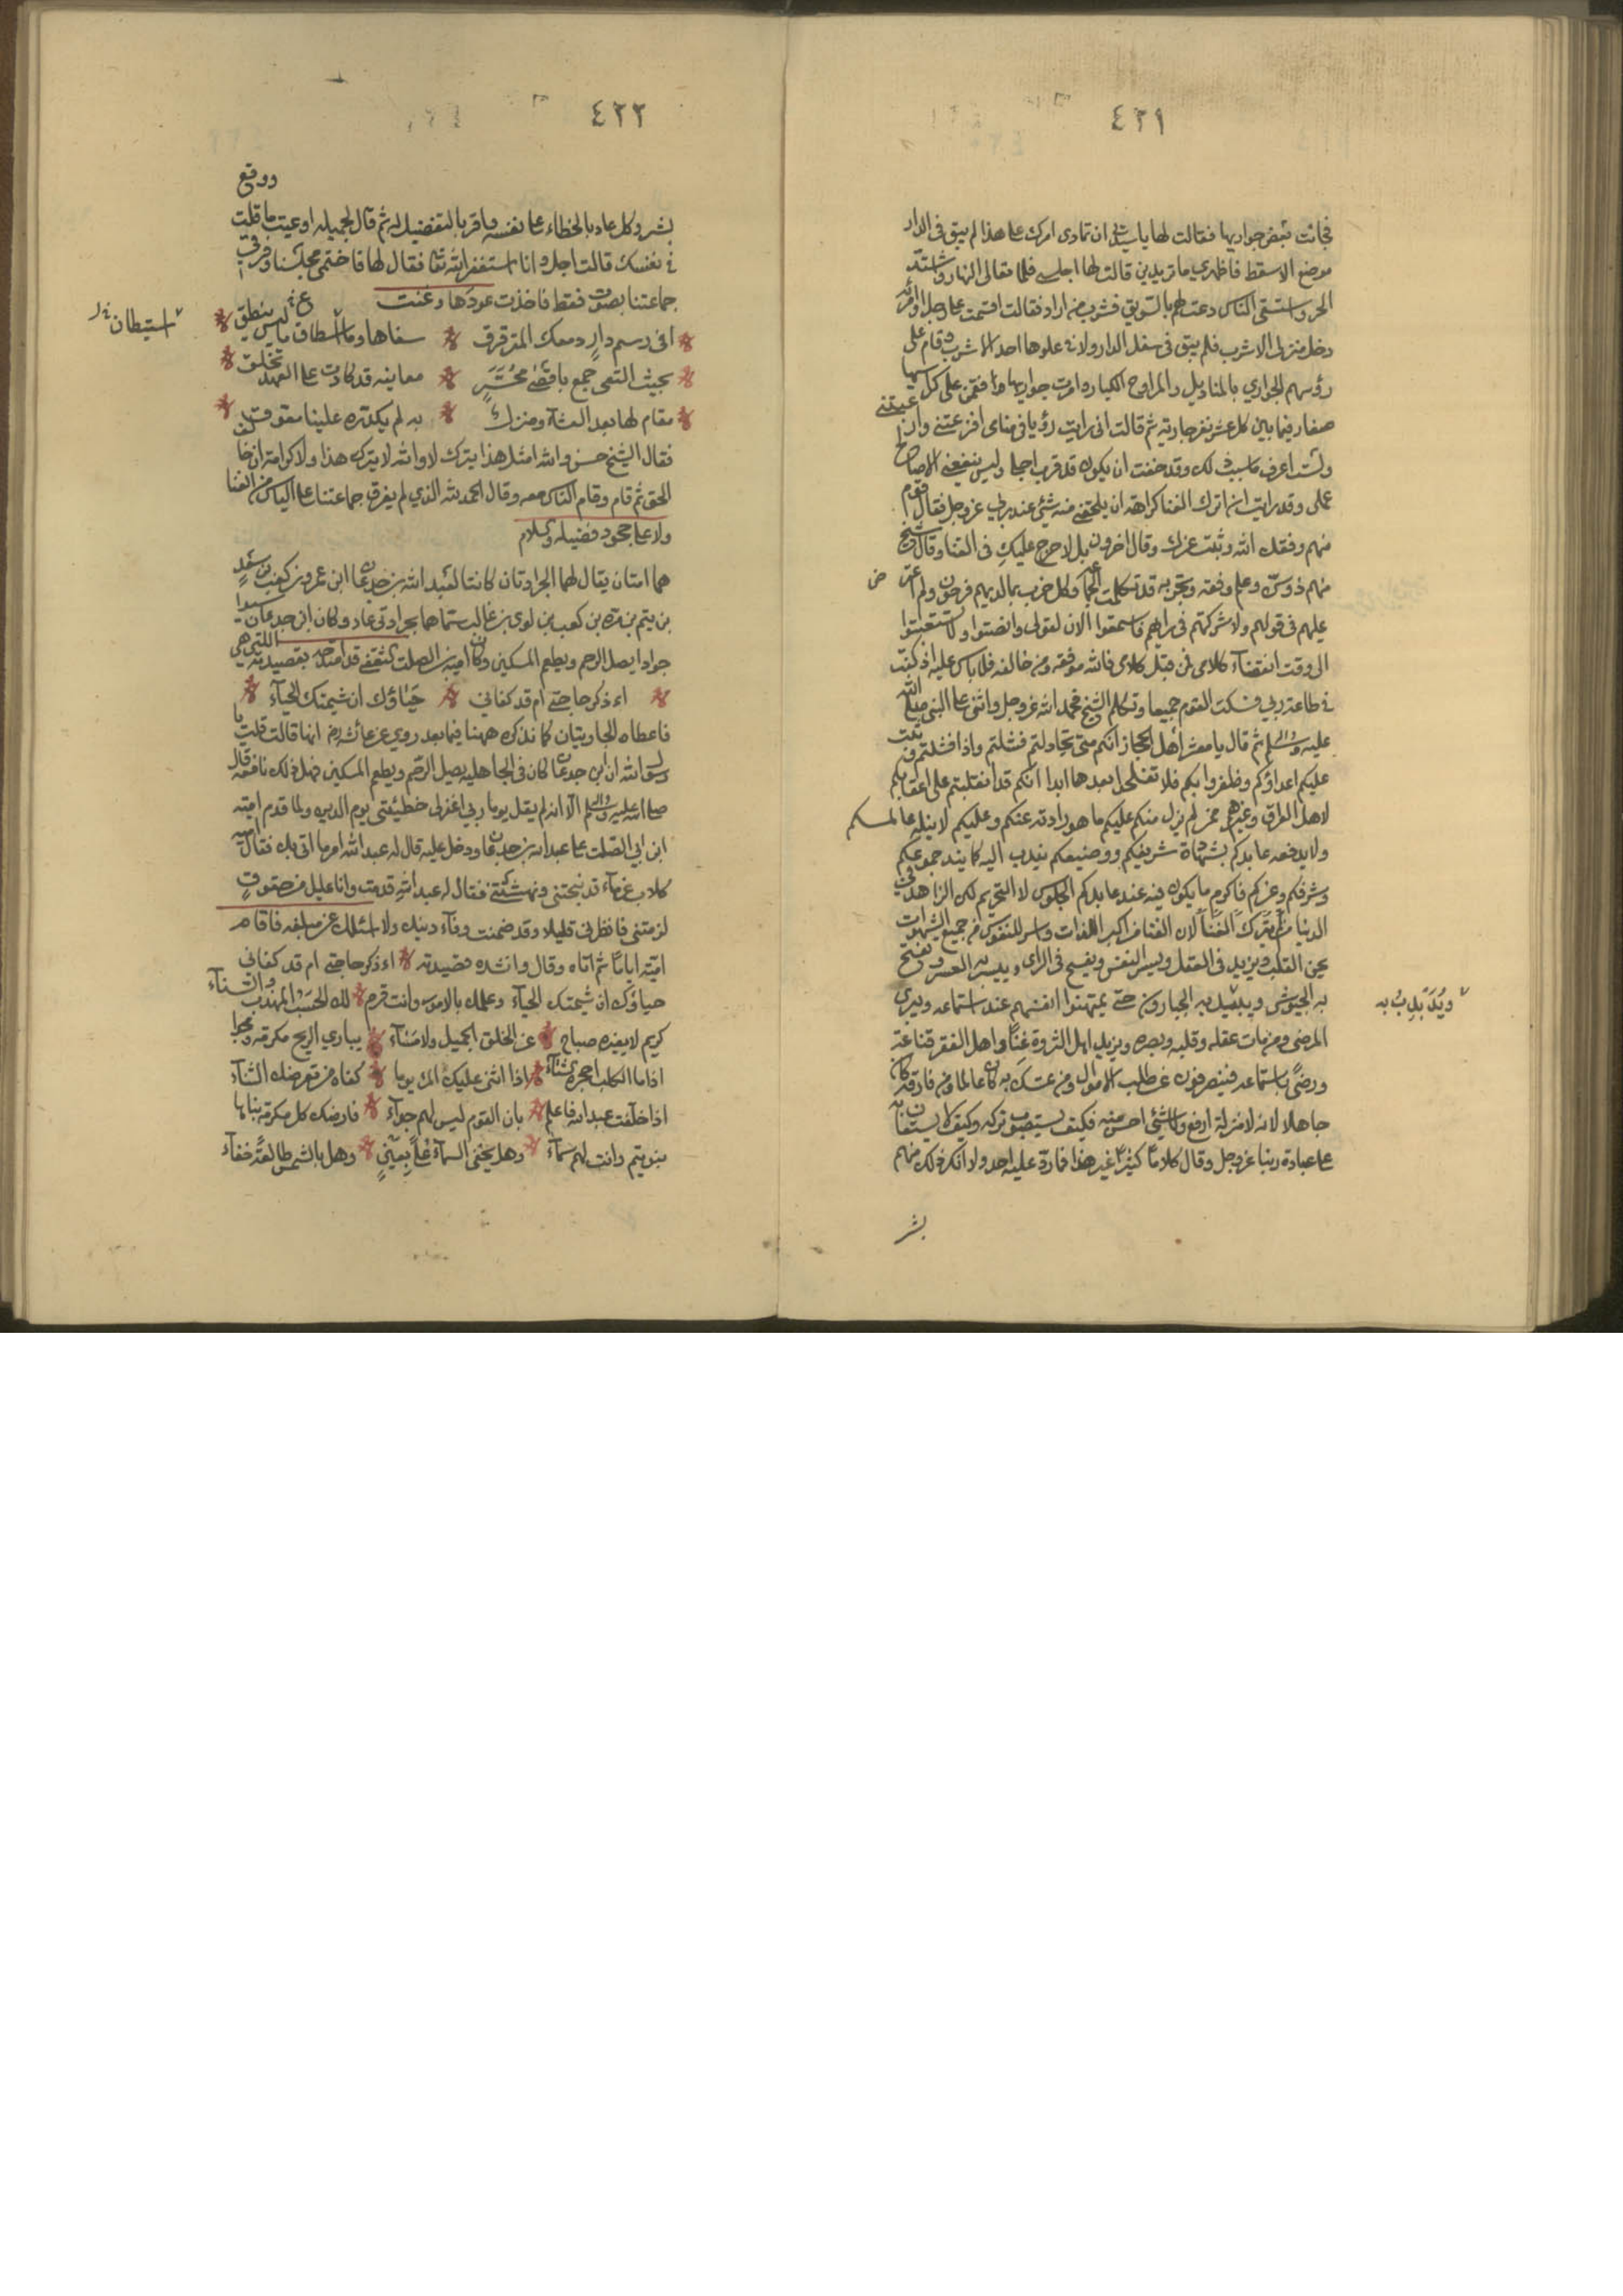 ٤٢١
فجائت بعض جواريها فقالت لها يا سيدتي ان تمادى امرك على هذا لم يبق في الدار
موضع الا سقط فاظهري ما تريدين قالت لها اجلسي فلما تعالى النهار واشتد
الحر واستسقى الناس دعت لهم بالسويق فشرب من اراد فقالت اقسمت على كل رجل وامرأة
دخل منزلي الا شرب فلم يبق في سفل الدار ولا في علوها احد الا شرب وقام على
رؤسهم الجواري بالمناديل والمراوح الكبار وامرت جواريها فقمن على كراسيها
صغار فيما بين كل عشر نفر جارية ثم قالت اني رايت رؤيا في منامي افزعتني وارعبتني
ولست اعرف ما سبب ذلك وقد خفت ان يكون قد قرب اجلي وليس ينفعني الا صالح
عملي وقد رايت ان اترك الغنا كراهة ان يلحقني منه شئ عند ربي عز وجل فقال قوم
منهم وفقك الله وثبت عزمك وقال اخرون بل لا حرج عليك في الغنا وقال شيخ
منهم ذو سن وعلم وفقه وتجربه قد تكلمت الجماعة وكل حزب بما لديهم فرحون ولم اعترض
عليهم في قولهم ولا شركتهم في رايهم فاستمعوا الان لقولي وانصتوا ولا تشغبوا
الى وقت انقضآء كلامي فمن قبل كلامي فالله موفقه ومن خالفه فلا باس عليه اذ كنت
في طاعة ربي فسكت القوم جميعا وتكلم الشيخ فحمد الله عز وجل واثنى على النبي صلى الله
عليه وسلم ثم قال يا معشر اهل الحجاز انكم متى تخاذلتم فشلتم واذا فشلتم وثبت
عليكم اعداؤكم وظفروا بكم فلا تفلحوا بعدها ابدا انكم قد انقلبتم على اعقابكم
لاهل العراق وغيرهم ممن لم يزل منكم عليكم ما هو رادته عنكم وعليكم لا ينله عالمكم
ولا يدفعه عابدكم بشهادة شريفكم ووضيعكم يندب اليه كما يندب جموعكم
وشرفكم وعزكم فاكرم ما يكون فيه عند عابدكم الجلوس لا التحريم لكن الزاهد في
الدنيا من ترك الغنآء لان الغنا من اكبر اللذات واسر للنفوس من جميع الشهوات
يحي القلب ويزيد في العقل ويسر النفس ويفسح في الراى وييسر به العسر وتفتح
به الجيوش ويذلل به الجبارون حتى يمتهنوا انفسهم عند استماعه ويبرى
المرضى ومن مات عقله وقلبه وبصره ويزيد اهل الثروة غنا واهل الفقر قناعة
ورضى باستماعه فينصرفون عن طلب الاموال ومن تمسك به كان عالما ومن فارقه كان
جاهلا لانه لا منزلة ارفع ولا شئ احسن منه فكيف يستصوب تركه وكيف لا يستعان به
على عبادة ربنا عز وجل وقال كلاما كثيرا غير هذا فما رد عليه احد ولا انكر ذلك منهم
بشر
ويُذَبَّلُ به
٤٢٢
ووقع
بشر وكل عاد بالخطاء على نفسه واقر بالتفضيل له ثم قال لجميله اوعيت ما قلت
في نفسك قالت اجل وانا استغفر الله تعا فقال لها فاختمي مجلسنا وفرقي
جماعتنا بصوت فقط فاخذت عودها وغنت
افى رسم دار دمعك المترقرق سفاها وما استطاق ما ليس ينطق
بحيث التقى جمع باقصى محسر معاينه قد كادت على العهد تخلق
مقام لها بعد العشآء ومنزلك به لم يكدره علينا معوق
فقال الشيخ حسن والله امثل هذا يترك لا والله لا يترك هذا ولا كرامة لمن خالف
الحق ثم قام وقام الناس معه وقال الحمد لله الذي لم يفرق جماعتنا على الياس من الغنا
ولا على جحود فضيله وسلام
هما امتان يقال لهما الجرادتان كانتا لعبد الله بن جدعان ابن عمرو بن كعب بن سعد
بن تيم بن مرة بن كعب بن لوى بن غالب سماهما بجرادتي عاد وكان ابن جدعان سيدا
جوادا يصل الرحم ويطعم المسكين وكان امية بن الصلت الثقفي قد امتدحه بقصيدته اللتي هي
اءذكر حاجتي ام قد كفاني حياؤك ان شيمتك الحيآء
فاعطاه الجاريتان كما نذكره ههنا فيما بعد روي عن عائشه رض انها قالت قلت يا
رسول الله ان ابن جدعان كان في الجاهلية يصل الرحم ويطعم المسكين فهل ذلك نافعه قال
صلى الله عليه وسلم الا انه لم يقل يوما ربي اغفر لي خطيئتي يوم الدين ولما قدم امية
ابن ابي الصلت على عبد الله بن جدعان ودخل عليه قال له عبد الله امر ما اتى بك فقال امية
كلاب غرمآء قد نبحتني ونهشتني فقال له عبد الله قدمت وانا عليل من حقوق
لزمتني فانظرني قليلا وقد ضمنت وفآء دينك ولا اسئلك عن مبلغه فاقام
امية اياما ثم اتاه وقال وانشده قصيدته اءذكر حاجتي ام قد كفاني
حياؤك ان شيمتك الحيآء وعلمك بالامور وانت قرم لك الحسب المهذب والسنآء
كريم لا يغيره صباح عن الخلق الجميل ولا مسآء يباري الريح مكرمة ومجدا
اذا ما الكلب احجره الشتآء اذا اثنى عليك المرء يوما كفاه من تعرضك الثنآء
اذا خلفت عبد الله فاعلم بان القوم ليس لهم جزآء فارضك كل مكرمة بناها
بنو تيم وانت لهم سمآء وهل يخفى السمآء على بصير وهل بالشمس طالعة خفآء
استيطان